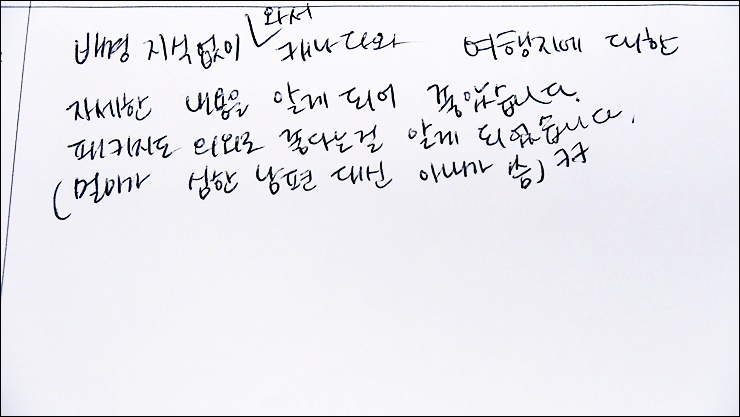 배경 지식없이 와서 캐나다와 여행지에 대한
자세한 내용을 알게 되어 좋았습니다.
패키지도 의외로 좋다는걸 알게 되었습니다.
(멀미가 심한 남편 대신 아내가 씀) ㅋㅋ